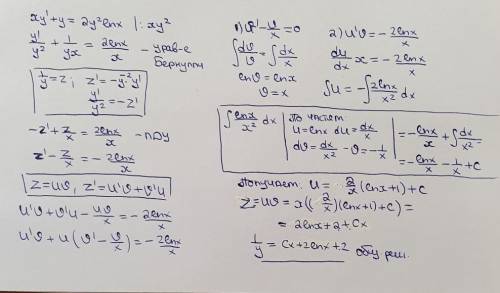 xy' + y = 2y²lnx |: xy²
y'/y² + 1/yx = 2lnx/x – урав-е
Бернулли
1/y = z; z' = -y⁻²y'
y'/y² = -z'
-z' + z/x = 2lnx/x – ЛДУ
z' - z/x = -2lnx/x
z = uv, z' = u'v + v'u
u'v + v'u - uv/x = -2lnx/x
u'v + u(v' - v/x) = -2lnx/x
1) v' - v/x = 0
∫dv/v = ∫dx/x
lnv = lnx
v = x
2) u'v = -2lnx/x
du/dx x = -2lnx/x
∫u = -∫2lnx/x² dx
∫lnx/x² dx | По частям
u = lnx du = dx/x
dv = dx/x² - v = -1/x | = -lnx/x + ∫dx/x² =
= -lnx/x - 1/x + C
Получаем: u = 2/x (lnx+1) + C
z = uv = x((2/x)(lnx+1) + C) =
= 2lnx + 2 + Cx
1/y = Cx + 2lnx + 2 общ реш.